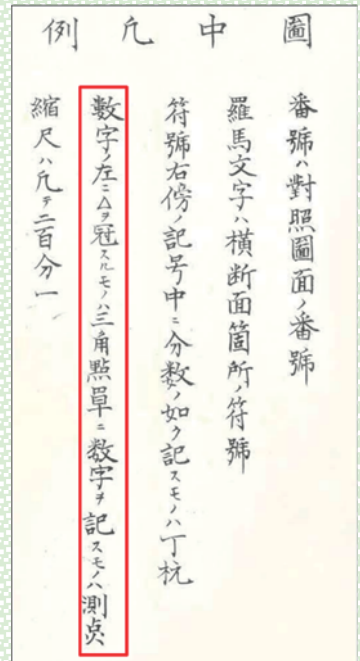 圖中凡例
番號ハ對照圖面ノ番號
羅馬文字ハ横断面箇所ノ符號
符號右傍ノ記号中ニ分数ノ如ク記スモノハ丁杭
數字ノ左ニ△ヲ冠スルモノハ三角點單ニ数字ヲ記スモノハ測点
縮尺ハ凡テ二百分一